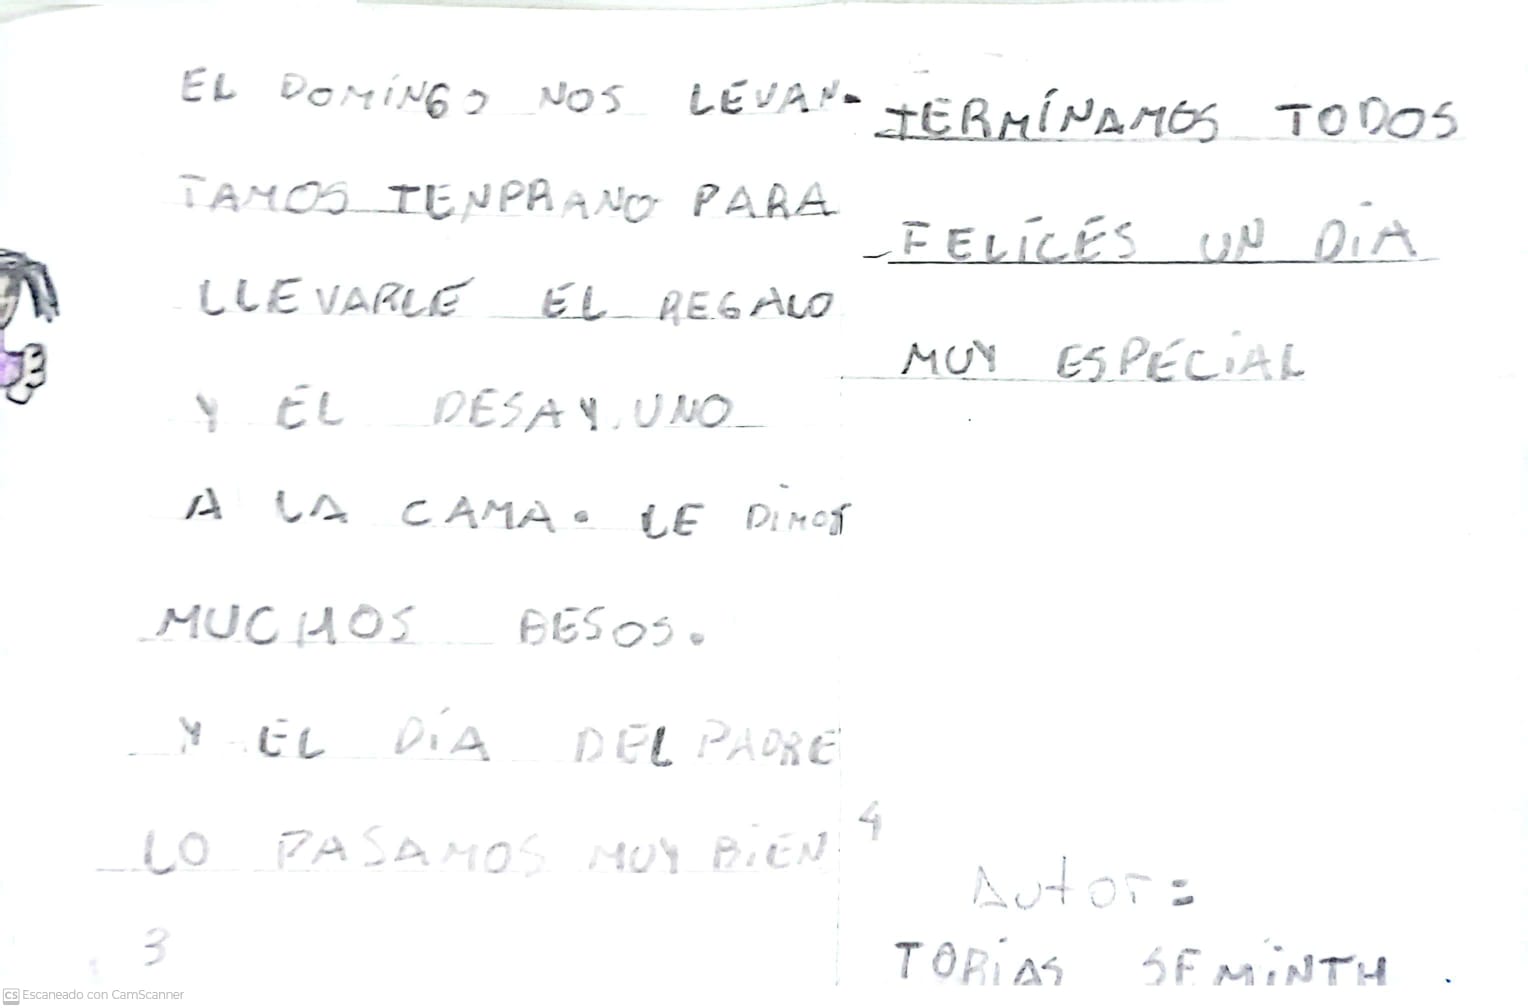 EL DOMINGO NOS LEVAN-
TAMOS TENPRANO PARA
LLEVARLE EL REGALO
Y EL DESAYUNO
A LA CAMA. LE DIMOS
MUCHOS BESOS.
Y EL DÍA DEL PADRE
LO PASAMOS MUY BIEN
3
TERMINAMOS TODOS
FELICES UN DIA
MUY ESPECIAL
4
Autor=
TOBIAS SEMINTH.
CS Escaneado con CamScanner